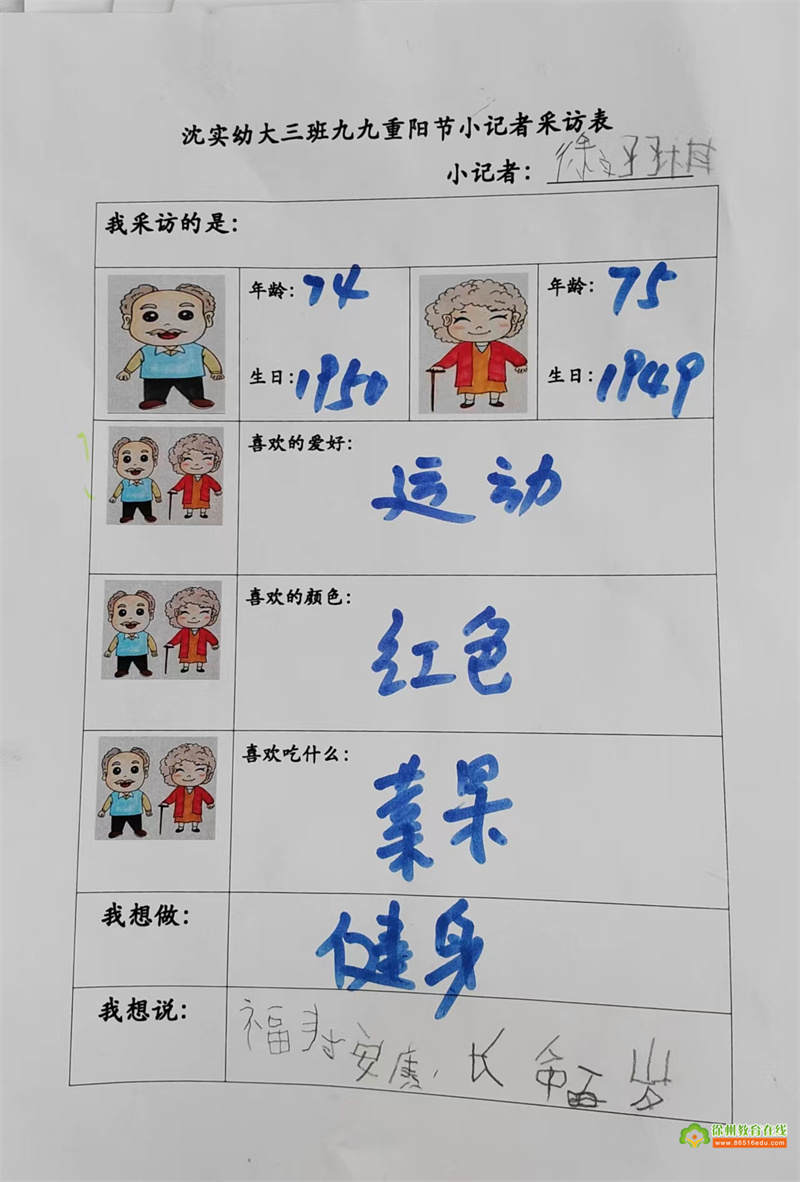 沈实幼大三班九九重阳节小记者采访表
小记者：徐
我采访的是：
年龄：74
生日：1950
年龄：75
生日：1949
喜欢的爱好：
运动
喜欢的颜色：
红色
喜欢吃什么：
菜果
我想做：
健身
我想说：
福寿安康，长命百岁
徐州教育在线
www.86516edu.com